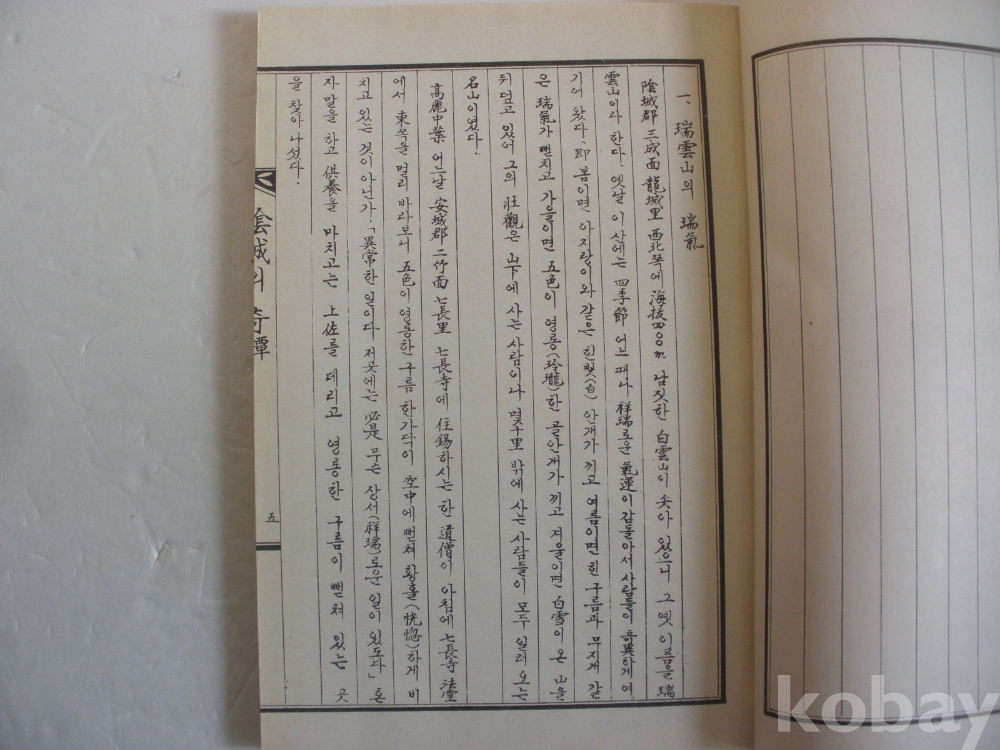 一、瑞雲山의 瑞氣
陰城郡 三成面 龍城里 西北쪽에 海抜四00m 남짓한 白雲山이 솟아 있으니 그 옛 이름을 瑞
雲山이라 한다. 옛날 이 산에는 四季節 어느 때나 祥瑞로운 氣運이 감돌아서 사람들이 奇異하게 여
기어 왔다. 即 봄이면 아지랑이와 같은 흰빛(白) 안개가 끼고 여름이면 흰 구름과 무지개 같
은 瑞氣가 뻗치고 가을이면 五色이 영롱(玲瓏)한 골안개가 끼고 겨울이면 白雪이 온 山을
뒤덮고 있어 그의 壯觀은 山下에 사는 사람이나 몇十里 밖에 사는 사람들이 모두 일러 오는
名山이였다.
高麗中葉 어느날 安城郡 二竹面 七長里 七長寺에 住錫하시는 한 道僧이 아침에 七長寺 法堂
에서 東쪽을 멀리 바라보니 五色이 영롱한 구름 한가닥이 空中에 뻗쳐 황홀(恍惚)하게 비
치고 있는 것이 아닌가.「異常한 일이다 저곳에는 必是 무슨 상서(祥瑞)로운 일이 있도다」혼
자말을 하고 供養을 마치고는 上佐를 데리고 영롱한 구름이 뻗쳐 있는 곳
을 찾아 나섰다.
陰城의 奇譚
五
kobay